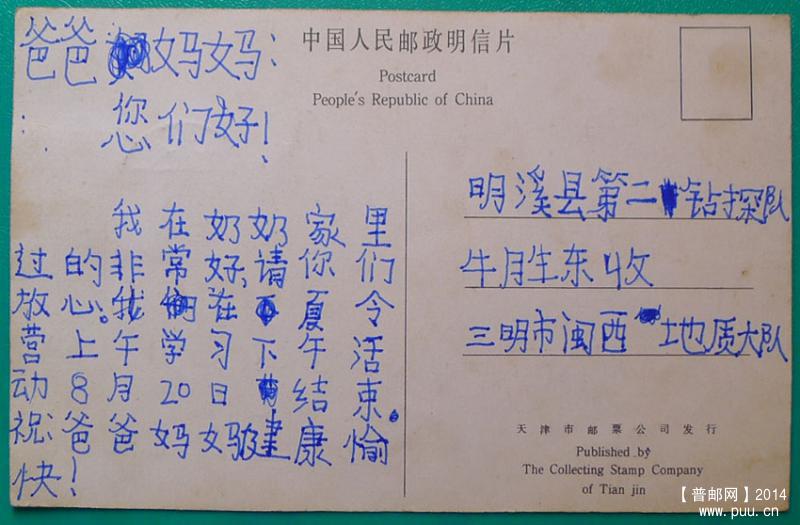 中国人民邮政明信片
Postcard
People's Republic of China
爸爸妈妈:
您们好!
我在奶奶家里
过的非常好,请你们
放心。我在夏令
营上午学习下午活
动8月20日结束。
祝爸爸妈妈健康愉
快!
明溪县第二钻探队
牛胜东收
三明市闽西地质大队
天津市邮票公司发行
Published by
The Collecting Stamp Company
of Tian jin
【普邮网】2014
www.puu.cn